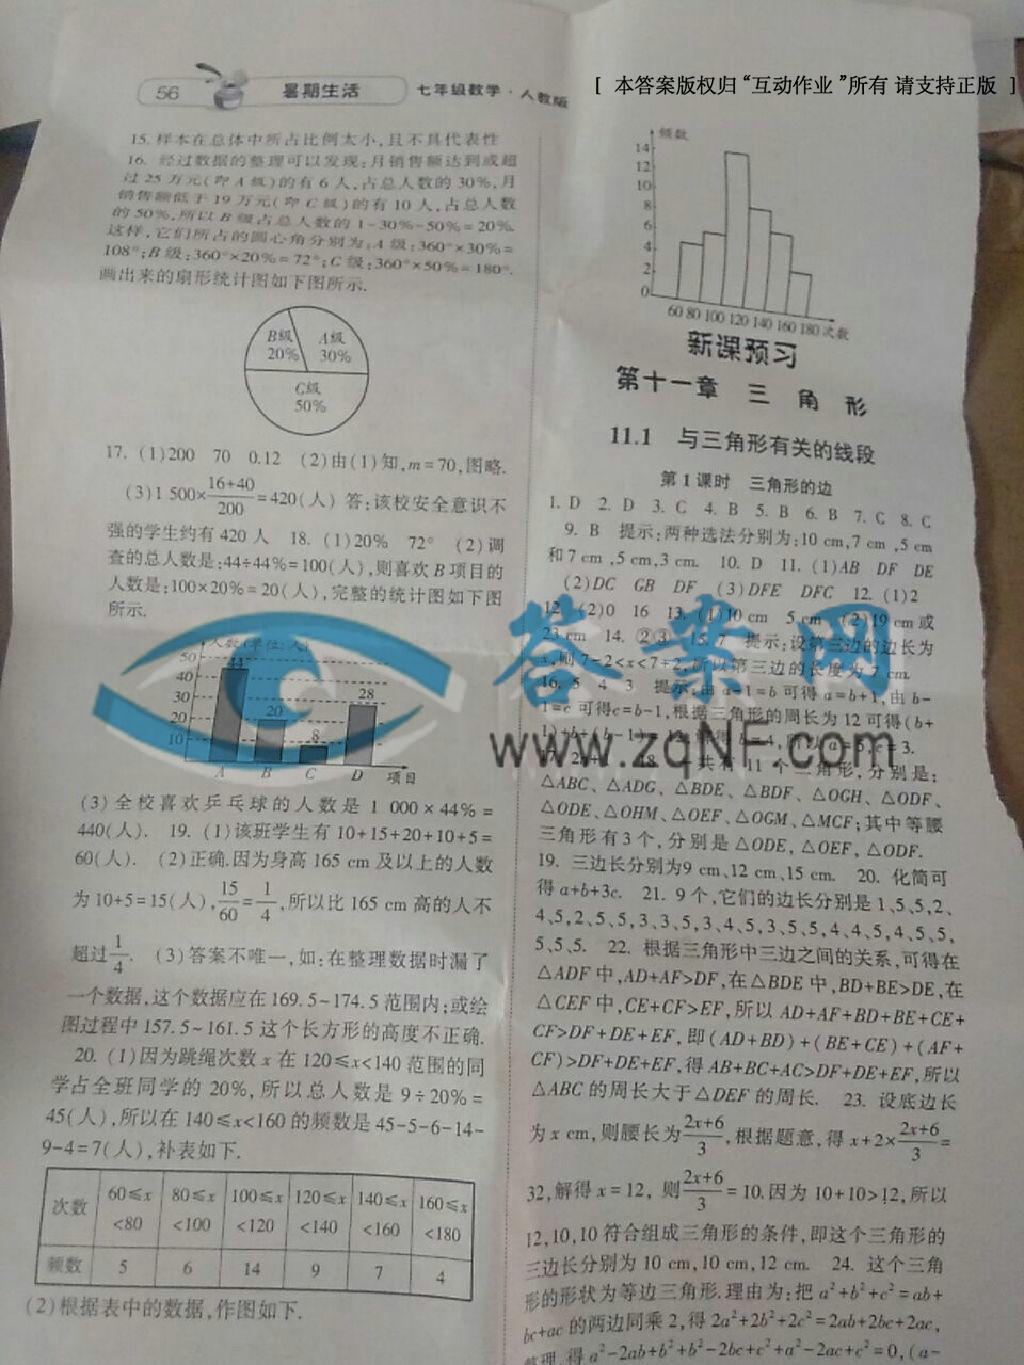 56 暑期生活 七年级数学·人教版
[ 本答案版权归“互动作业”所有 请支持正版 ]
15. 样本在总体中所占比例太小,且不具代表性
16. 经过数据的整理可以发现:月销售额达到或超
过25万元(即A级)的有6人,占总人数的30%,月
销售额低于19万元(即C级)的有10人,占总人数
的50%,所以B级占总人数的1-30%-50%=20%.
这样,它们所占的圆心角分别为:A级:360°×30%=
108°;B级:360°×20%=72°;C级:360°×50%=180°.
画出来的扇形统计图如下图所示.
B级 A级
20% 30%
C级
50%
17. (1)200 70 0.12 (2)由(1)知,m=70,图略.
(3)1 500×(16+40)/200=420(人) 答:该校安全意识不
强的学生约有420人 18. (1)20% 72° (2)调
查的总人数是:44÷44%=100(人),则喜欢B项目的
人数是:100×20%=20(人),完整的统计图如下图
所示.
人数(单位:人)
50
40
30
20
10
44
20
8
28
A B C D 项目
(3)全校喜欢乒乓球的人数是1 000×44%=
440(人). 19. (1)该班学生有10+15+20+10+5=
60(人). (2)正确.因为身高165 cm及以上的人数
为10+5=15(人),15/60=1/4,所以比165 cm高的人不
超过1/4. (3)答案不唯一,如:在整理数据时漏了
一个数据,这个数据应在169.5~174.5范围内;或绘
图过程中157.5~161.5这个长方形的高度不正确.
20. (1)因为跳绳次数x在120≤x<140范围的同
学占全班同学的20%,所以总人数是9÷20%=
45(人),所以在140≤x<160的频数是45-5-6-14-
9-4=7(人),补表如下.
次数 60≤x<80 80≤x<100 100≤x<120 120≤x<140 140≤x<160 160≤x<180
频数 5 6 14 9 7 4
(2)根据表中的数据,作图如下.
频数
14
12
10
8
6
4
2
0
60 80 100 120 140 160 180 次数
新课预习
第十一章 三角形
11.1 与三角形有关的线段
第1课时 三角形的边
1. D 2. D 3. C 4. B 5. B 6. B 7. C 8. C
9. B 提示:两种选法分别为:10 cm,7 cm,5 cm
和7 cm,5 cm,3 cm. 10. D 11. (1)AB DF DE
(2)DC GB DF (3)DFE DFC 12. (1)2
12 (2)0 16 13. (1)10 cm 5 cm (2)19 cm或
23 cm 14. ②③ 15. 7 提示:设第三边的边长为
x,则7-2<x<7+2,所以第三边的长度为7 cm.
16. 5 4 3 提示:由a-1=b可得a=b+1,由b-
1=c可得c=b-1,根据三角形的周长为12可得(b+
共有11个三角形,分别是:
△ABC、△ADG、△BDE、△BDF、△OGH、△ODF、
△ODE、△OHM、△OEF、△OGM、△MCF;其中等腰
三角形有3个,分别是△ODE,△OEF,△ODF.
19. 三边长分别为9 cm、12 cm、15 cm. 20. 化简可
得a+b+3c. 21. 9个,它们的边长分别是1、5、5,2、
4、5,2、5、5,3、3、5,3、4、5,3、5、5,4、4、5,4、5、5,
5、5、5. 22. 根据三角形中三边之间的关系,可得在
△ADF中,AD+AF>DF,在△BDE中,BD+BE>DE,在
△CEF中,CE+CF>EF,所以AD+AF+BD+BE+CE+
CF>DF+DE+EF,即(AD+BD)+(BE+CE)+(AF+
CF)>DF+DE+EF,得AB+BC+AC>DF+DE+EF,所以
△ABC的周长大于△DEF的周长. 23. 设底边长
为x cm,则腰长为(2x+6)/3,根据题意,得x+2×(2x+6)/3=
32,解得x=12,则(2x+6)/3=10.因为10+10>12,所以
12,10,10符合组成三角形的条件,即这个三角形的
三边长分别为10 cm,10 cm,12 cm. 24. 这个三角
形的形状为等边三角形.理由为:把a²+b²+c²=ab+
bc+ac的两边同乘2,得2a²+2b²+2c²=2ab+2bc+2ac,
整理,得a²-2ab+b²+b²-2bc+c²+a²-2ac+c²=0,(a-
答案网
www.zqNF.com